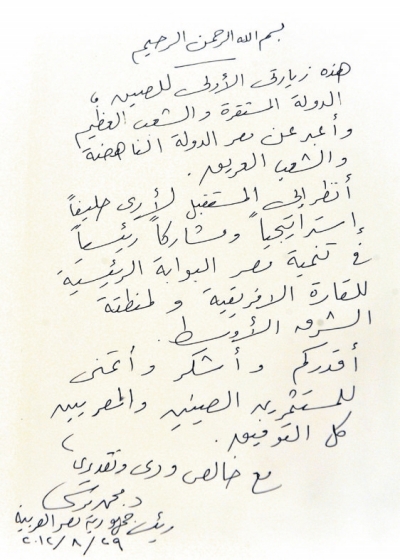 بسم الله الرحمن الرحيم
هذه زيارتى الأولى للصين،
الدولة المستقرة والشعب العظيم
وأعبر عن مصر الدولة الناهضة
والشعب العريق.
أنظر إلى المستقبل لأرى حليفاً
إستراتيجياً ومشاركاً رئيسياً
فى تنمية مصر البوابة الرئيسية
للقارة الافريقية ولمنطقة
الشرق الأوسط.
أقدركم وأشكر وأتمنى
للمستثمرين الصينين والمصريين
كل التوفيق.
مع خالص ودى وتقديرى،
د. محمد مرسى
رئيس جمهورية مصر العربية
٢٠١٢/٨/٢٩